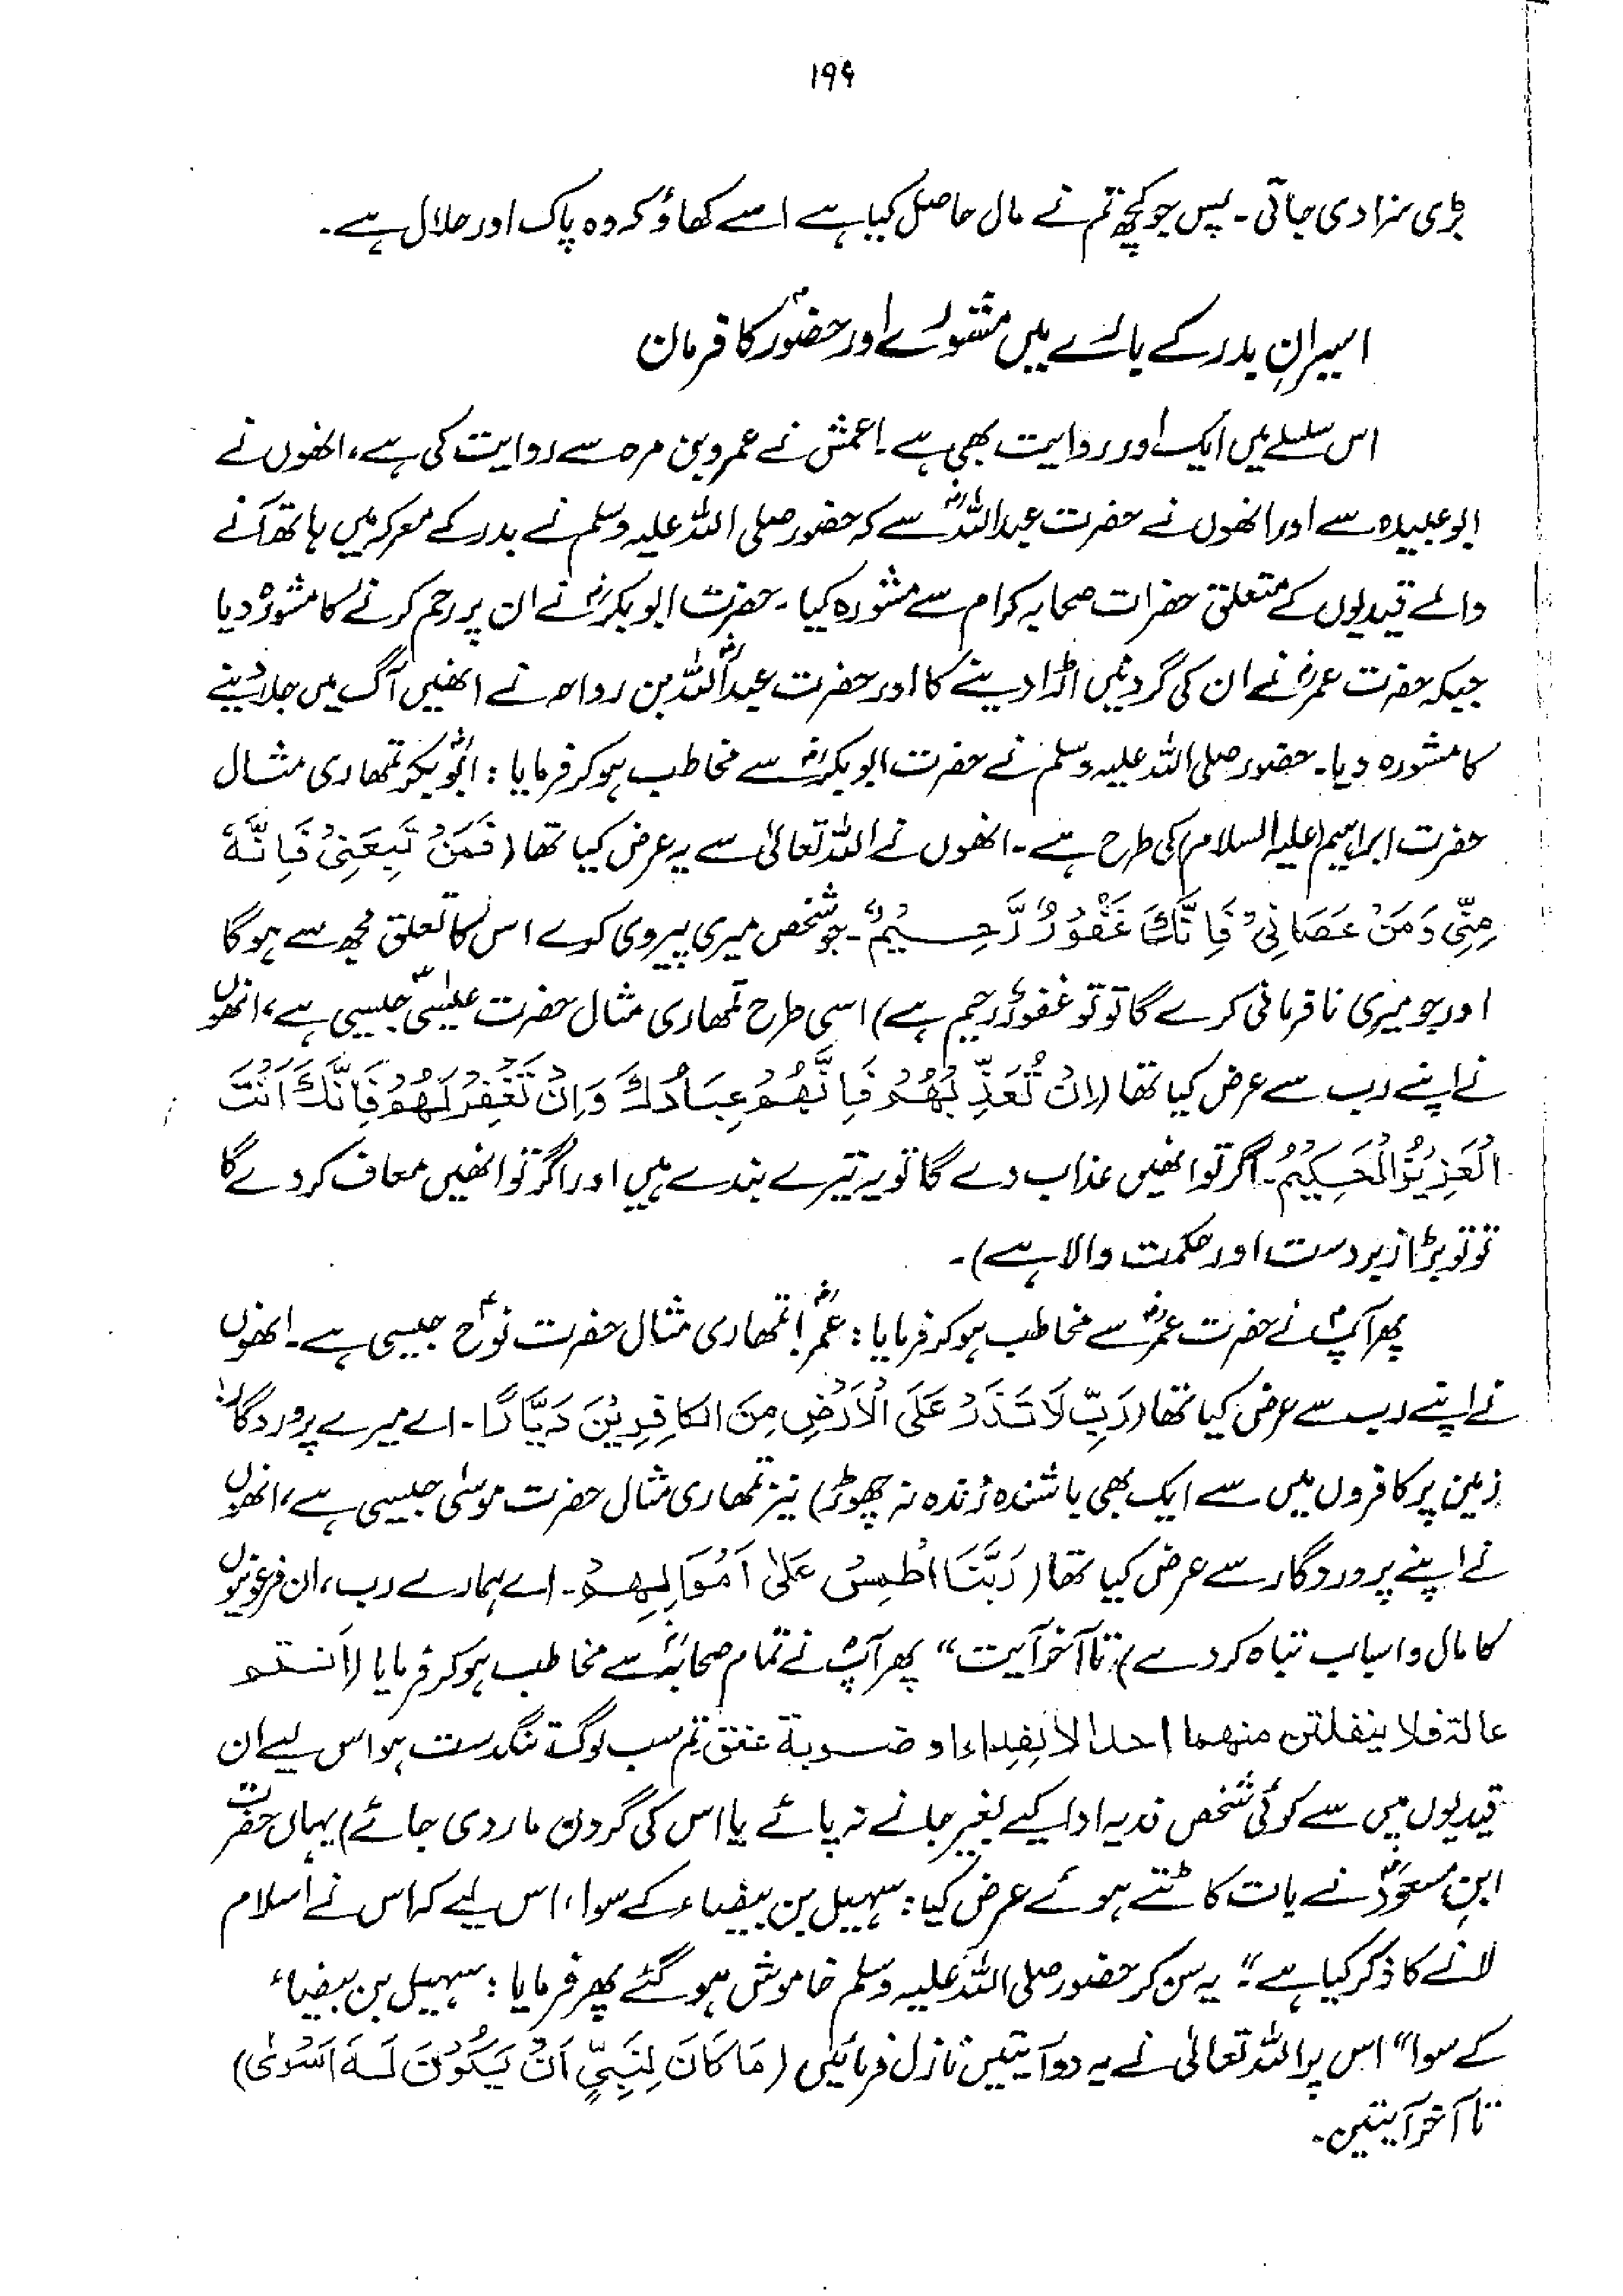 ۱۹۹
بڑی سزا دی جاتی۔ پس جو کچھ تم نے مال حاصل کیا ہے اسے کھاؤ کہ وہ پاک اور حلال ہے۔
اسیرانِ بدر کے بارے میں مشورے اور حضورؐ کا فرمان
اس سلسلے میں ایک اور روایت بھی ہے۔ اعمش نے عمرو بن مرہ سے روایت کی ہے، انھوں نے
ابوعبیدہ سے اور انھوں نے حضرت عبداللہؓ سے کہ حضور صلی اللہ علیہ وسلم نے بدر کے معرکہ میں ہاتھ آنے
والے قیدیوں کے متعلق حضرات صحابہ کرام سے مشورہ کیا۔ حضرت ابوبکرؓ نے ان پر رحم کرنے کا مشورہ دیا
جبکہ حضرت عمرؓ نے ان کی گردنیں اڑا دینے کا اور حضرت عبداللہؓ بن رواحہ نے انھیں آگ میں جلا دینے
کا مشورہ دیا۔ حضور صلی اللہ علیہ وسلم نے حضرت ابوبکرؓ سے مخاطب ہو کر فرمایا: ابوبکرؓ تمھاری مثال
حضرت ابراہیم (علیہ السلام) کی طرح ہے۔ انھوں نے اللہ تعالیٰ سے یہ عرض کیا تھا (فَمَنْ تَبِعَنِیْ فَاِنَّهٗ
مِنِّیْ وَمَنْ عَصَانِیْ فَاِنَّكَ غَفُوْرٌ رَّحِیْمٌ۔ جو شخص میری پیروی کرے اس کا تعلق مجھ سے ہوگا
اور جو میری نافرمانی کرے گا تو تو غفورٌ رحیم ہے) اسی طرح تمھاری مثال حضرت عیسیٰؑ جیسی ہے، انھوں
نے اپنے رب سے عرض کیا تھا (اِنْ تُعَذِّبْهُمْ فَاِنَّهُمْ عِبَادُكَ وَاِنْ تَغْفِرْ لَهُمْ فَاِنَّكَ اَنْتَ
الْعَزِیْزُ الْحَكِیْمُ۔ اگر تو انھیں عذاب دے گا تو یہ تیرے بندے ہیں اور اگر تو انھیں معاف کر دے گا
تو تو بڑا زبردست اور حکمت والا ہے)۔
پھر آپؐ نے حضرت عمرؓ سے مخاطب ہو کر فرمایا: عمرؓ! تمھاری مثال حضرت نوحؑ جیسی ہے۔ انھوں
نے اپنے رب سے عرض کیا تھا (رَبِّ لَا تَذَرْ عَلَی الْاَرْضِ مِنَ الکَافِرِیْنَ دَیَّارًا۔ اے میرے پروردگار!
زمین پر کافروں میں سے ایک بھی باشندہ زندہ نہ چھوڑ) نیز تمھاری مثال حضرت موسٰی جیسی ہے، انھوں
نے اپنے پروردگار سے عرض کیا تھا (رَبَّنَا اطْمِسْ عَلٰی اَمْوَالِهِمْ۔ اے ہمارے رب، ان فرعونیوں
کا مال و اسباب تباہ کر دے) تا آخر آیت“ پھر آپؐ نے تمام صحابہؓ سے مخاطب ہو کر فرمایا (اَنتم
عالة فلا ینفلتن منهما احد الا بفداء او ضربة عنق تم سب لوگ تنگدست ہو اس لیے ان
قیدیوں میں سے کوئی شخص فدیہ ادا کیے بغیر جانے نہ پائے یا اس کی گردن مار دی جائے) یہاں حضرت
ابن مسعودؓ نے بات کاٹتے ہوئے عرض کیا: سہیل بن بیضاء کے سوا، اس لیے کہ اس نے اسلام
لانے کا ذکر کیا ہے“۔ یہ سن کر حضور صلی اللہ علیہ وسلم خاموش ہو گئے پھر فرمایا: سہیل بن بیضاء
کے سوا“ اس پر اللہ تعالٰی نے یہ دو آیتیں نازل فرمائیں (مَا کَانَ لِنَبِیٍّ اَنْ یَّکُوْنَ لَهٗ اَسْرٰی)
تا آخر آیتین۔